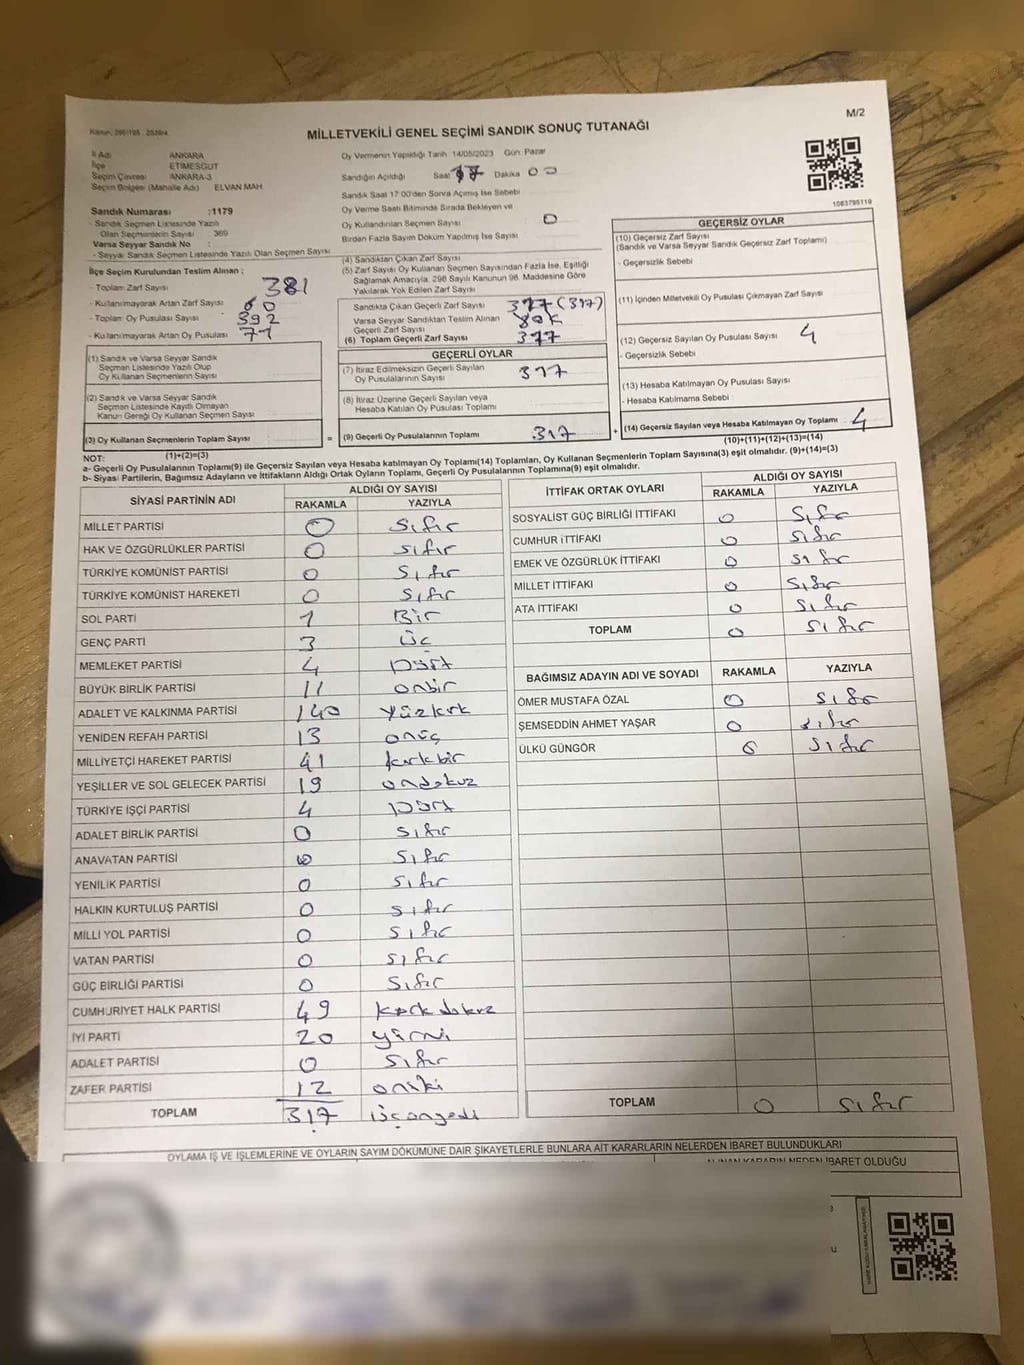 M/2
MİLLETVEKİLİ GENEL SEÇİMİ SANDIK SONUÇ TUTANAĞI
İl Adı ANKARA
İlçe ETİMESGUT
Seçim Çevresi ANKARA-3
Seçim Bölgesi (Mahalle Adı) ELVAN MAH.
Sandık Numarası :1179
- Sandık Seçmen Listesinde Yazılı
Olan Seçmenlerin Sayısı : 369
Varsa Seyyar Sandık No :
- Seyyar Sandık Seçmen Listesinde Yazılı Olan Seçmen Sayısı
İlçe Seçim Kurulundan Teslim Alınan ;
- Toplam Zarf Sayısı 381
- Kullanılmayarak Artan Zarf Sayısı 60
- Toplam Oy Pusulası Sayısı 392
- Kullanılmayarak Artan Oy Pusulası 71
(1) Sandık ve Varsa Seyyar Sandık
Seçmen Listesinde Yazılı Olup
Oy Kullanan Seçmenlerin Sayısı
(2) Sandık ve Varsa Seyyar Sandık
Seçmen Listesinde Kayıtlı Olmayan
Kanun Gereği Oy Kullanan Seçmen Sayısı
(3) Oy Kullanan Seçmenlerin Toplam Sayısı =
(1)+(2)=(3)
Oy Vermenin Yapıldığı Tarih: 14/05/2023 Gün: Pazar
Sandığın Açıldığı Saat 17 Dakika 00
Sandık Saat 17:00'den Sonra Açılmış İse Sebebi
Oy Verme Saati Bitiminde Sırada Bekleyen ve
Oy Kullandırılan Seçmen Sayısı 0
Birden Fazla Sayım Döküm Yapılmış İse Sayısı
(4) Sandıktan Çıkan Zarf Sayısı
(5) Zarf Sayısı Oy Kullanan Seçmen Sayısından Fazla İse, Eşitliği
Sağlamak Amacıyla; 298 Sayılı Kanunun 98. Maddesine Göre
Yakılarak Yok Edilen Zarf Sayısı
Sandıkta Çıkan Geçerli Zarf Sayısı 317 (317)
Varsa Seyyar Sandıktan Teslim Alınan
Geçerli Zarf Sayısı
(6) Toplam Geçerli Zarf Sayısı 317
GEÇERLİ OYLAR
(7) İtiraz Edilmeksizin Geçerli Sayılan
Oy Pusulalarının Sayısı 317
(8) İtiraz Üzerine Geçerli Sayılan veya
Hesaba Katılan Oy Pusulası Toplamı
(9) Geçerli Oy Pusulalarının Toplamı 317 +
1083795119
GEÇERSİZ OYLAR
(10) Geçersiz Zarf Sayısı
(Sandık ve Varsa Seyyar Sandık Geçersiz Zarf Toplamı)
- Geçersizlik Sebebi
(11) İçinden Milletvekili Oy Pusulası Çıkmayan Zarf Sayısı
(12) Geçersiz Sayılan Oy Pusulası Sayısı 4
- Geçersizlik Sebebi
(13) Hesaba Katılmayan Oy Pusulası Sayısı
- Hesaba Katılmama Sebebi
(14) Geçersiz Sayılan veya Hesaba Katılmayan Oy Toplamı 4
(10)+(11)+(12)+(13)=(14)
NOT:
a- Geçerli Oy Pusulalarının Toplamı(9) ile Geçersiz Sayılan veya Hesaba katılmayan Oy Toplamı(14) Toplamları, Oy Kullanan Seçmenlerin Toplam Sayısına(3) eşit olmalıdır. (9)+(14)=(3)
b- Siyasi Partilerin, Bağımsız Adayların ve İttifakların Aldığı Ortak Oyların Toplamı, Geçerli Oy Pusulalarının Toplamına(9) eşit olmalıdır.
SİYASİ PARTİNİN ADI ALDIĞI OY SAYISI
RAKAMLA YAZIYLA
MİLLET PARTİSİ 0 Sıfır
HAK VE ÖZGÜRLÜKLER PARTİSİ 0 Sıfır
TÜRKİYE KOMÜNİST PARTİSİ 0 Sıfır
TÜRKİYE KOMÜNİST HAREKETİ 0 Sıfır
SOL PARTİ 1 Bir
GENÇ PARTİ 3 üç
MEMLEKET PARTİSİ 4 Dört
BÜYÜK BİRLİK PARTİSİ 11 onbir
ADALET VE KALKINMA PARTİSİ 140 yüzkırk
YENİDEN REFAH PARTİSİ 13 onüç
MİLLİYETÇİ HAREKET PARTİSİ 41 kırkbir
YEŞİLLER VE SOL GELECEK PARTİSİ 19 ondokuz
TÜRKİYE İŞÇİ PARTİSİ 4 Dört
ADALET BİRLİK PARTİSİ 0 Sıfır
ANAVATAN PARTİSİ 0 Sıfır
YENİLİK PARTİSİ 0 Sıfır
HALKIN KURTULUŞ PARTİSİ 0 Sıfır
MİLLİ YOL PARTİSİ 0 Sıfır
VATAN PARTİSİ 0 Sıfır
GÜÇ BİRLİĞİ PARTİSİ 0 Sıfır
CUMHURİYET HALK PARTİSİ 49 kırkdokuz
İYİ PARTİ 20 yirmi
ADALET PARTİSİ 0 Sıfır
ZAFER PARTİSİ 12 oniki
TOPLAM 317 üçonyedi
İTTİFAK ORTAK OYLARI ALDIĞI OY SAYISI
RAKAMLA YAZIYLA
SOSYALİST GÜÇ BİRLİĞİ İTTİFAKI 0 Sıfır
CUMHUR İTTİFAKI 0 Sıfır
EMEK VE ÖZGÜRLÜK İTTİFAKI 0 Sıfır
MİLLET İTTİFAKI 0 Sıfır
ATA İTTİFAKI 0 Sıfır
TOPLAM 0 Sıfır
BAĞIMSIZ ADAYIN ADI VE SOYADI RAKAMLA YAZIYLA
ÖMER MUSTAFA ÖZAL 0 Sıfır
ŞEMSEDDİN AHMET YAŞAR 0 Sıfır
ÜLKÜ GÜNGÖR 0 Sıfır
TOPLAM 0 Sıfır
OYLAMA İŞ VE İŞLEMLERİNE VE OYLARIN SAYIM DÖKÜMÜNE DAİR ŞİKAYETLERLE BUNLARA AİT KARARLARIN NELERDEN İBARET BULUNDUKLARI
ALINAN KARARIN NEDEN İBARET OLDUĞU